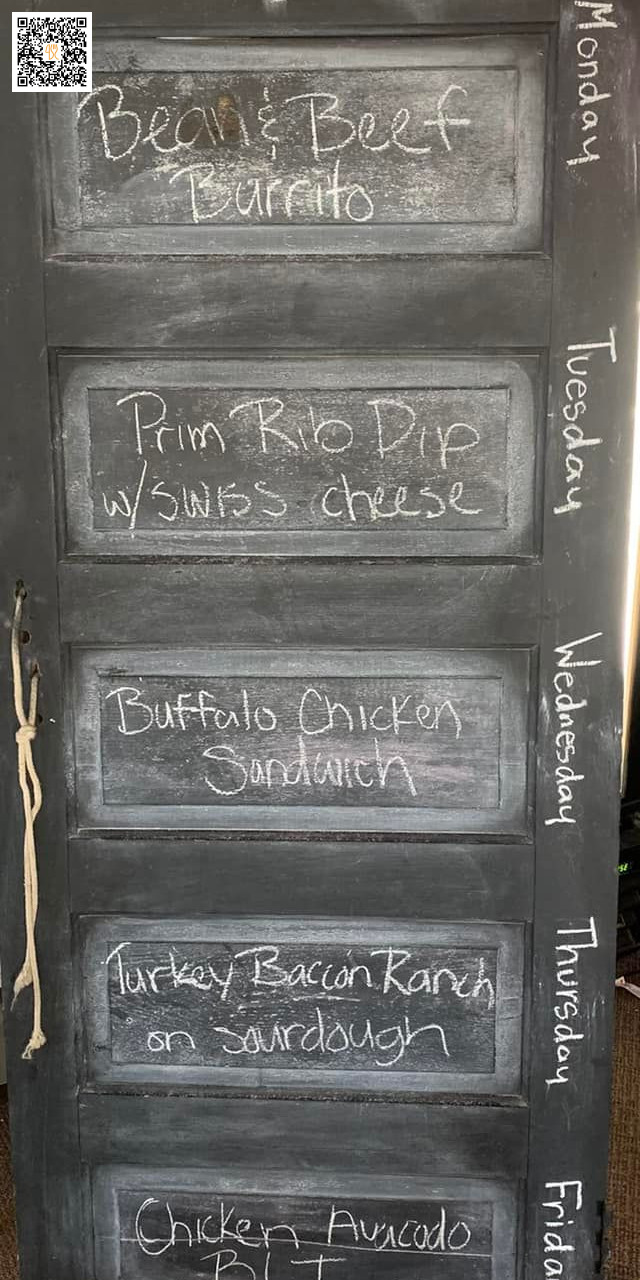 Monday
Bean & Beef
Burrito
Tuesday
Prim Rib Dip
w/ swiss cheese
Wednesday
Buffalo Chicken
Sandwich
Thursday
Turkey Baccon Ranch
on sourdough
Frida
Chicken Avacado
BLT